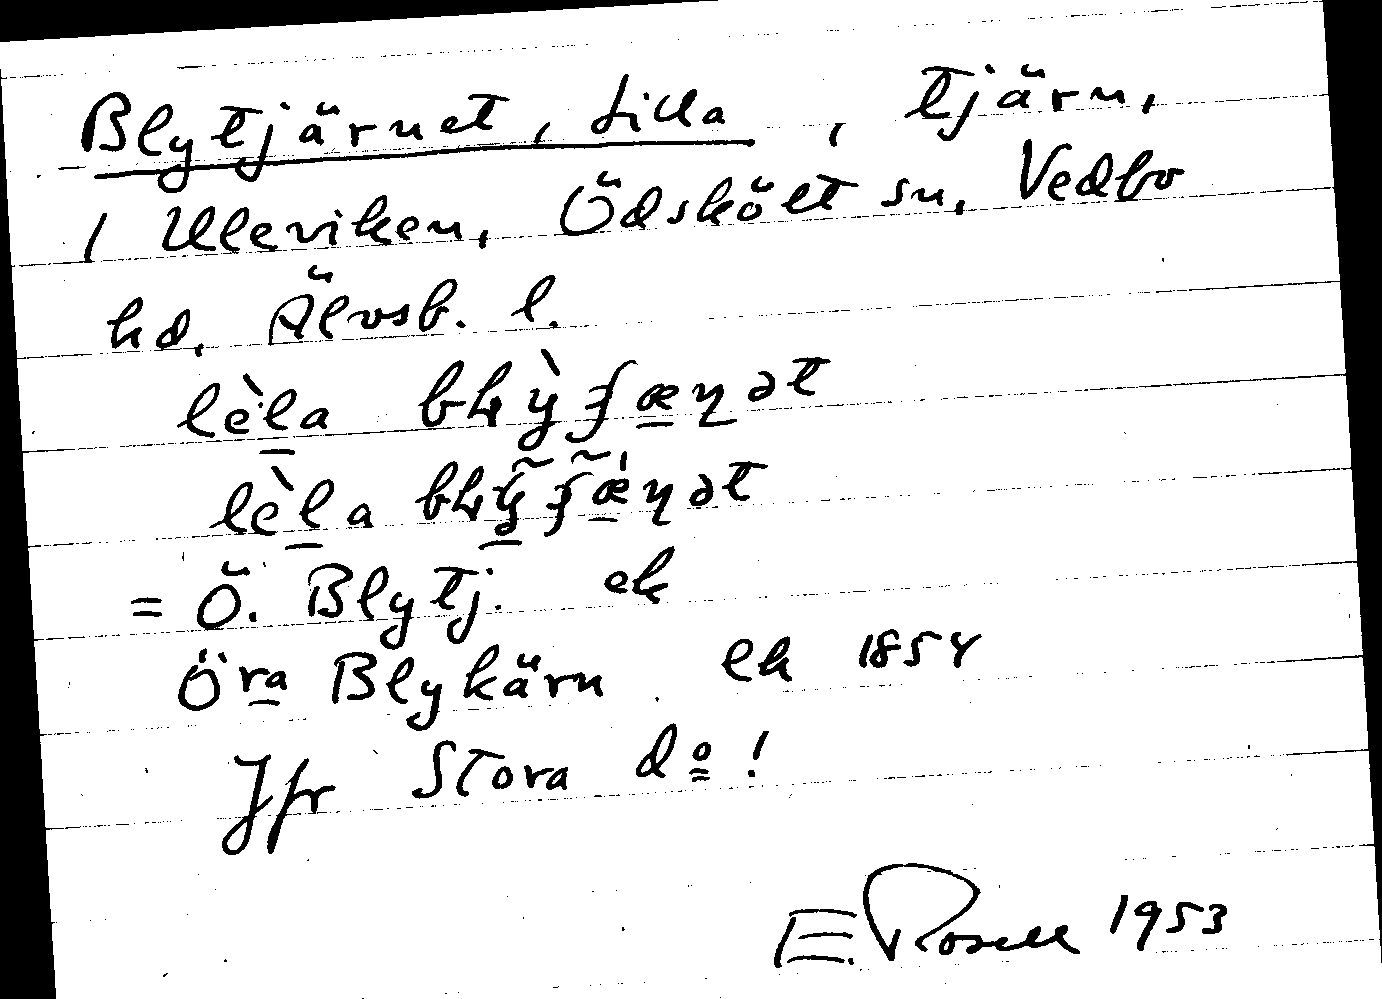 Blytjärnet, Lilla, tjärn,
i Uleviken, Ödskölt sn, Vedbo
hd, Älvsb. l.
lèla
lèla
= Ö. Blytj. ek
Öra Blykärn ek 1854
Jfr Stora do!
E. Rosell 1953